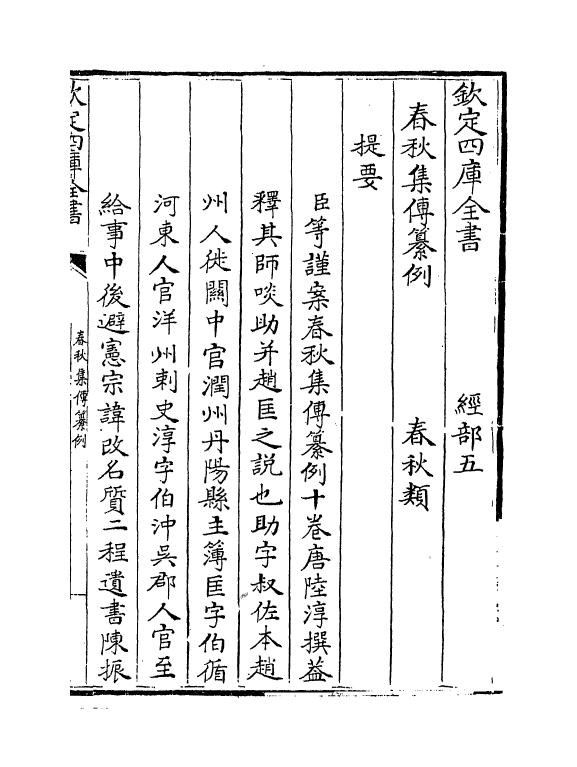 欽定四庫全書 經部五
春秋集傳纂例 春秋類
提要
臣等謹案春秋集傳纂例十卷唐陸淳撰蓋
釋其師啖助并趙匡之説也助字叔佐本趙
州人徙關中官潤州丹陽縣主簿匡字伯循
河東人官洋州刺史淳字伯沖吳郡人官至
給事中後避憲宗諱改名質二程遺書陳振
欽定四庫全書
春秋集傳纂例